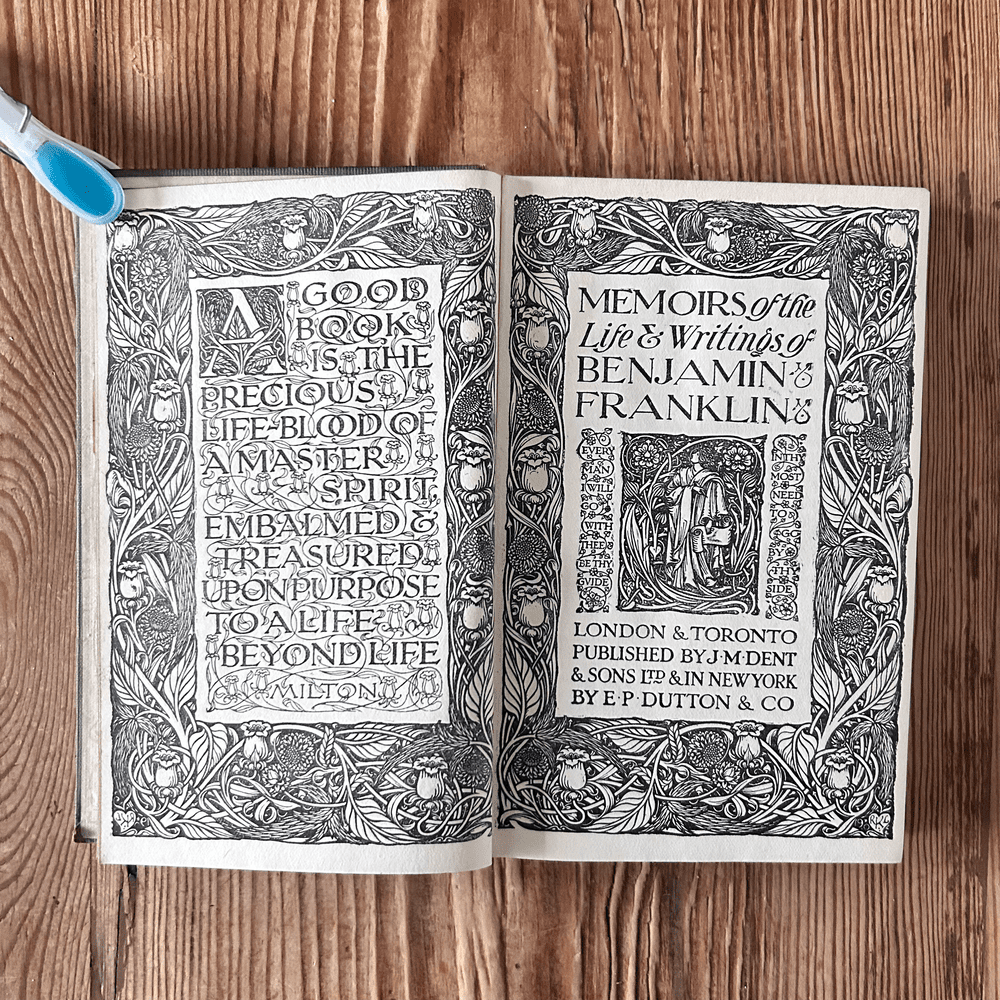 A GOOD
BOOK
IS THE
PRECIOUS
LIFE-BLOOD OF
A MASTER
SPIRIT,
EMBALMED &
TREASURED
UPON PURPOSE
TO A LIFE
BEYOND LIFE
MILTON
MEMOIRS of the
Life & Writings of
BENJAMIN
FRANKLIN
EVERY
MAN
I WILL
GO
WITH
THEE
BE THY
GVIDE
IN THY
MOST
NEED
TO
GO
BY
THY
SIDE
LONDON & TORONTO
PUBLISHED BY J·M·DENT
& SONS LTD & IN NEW YORK
BY E·P·DUTTON & CO